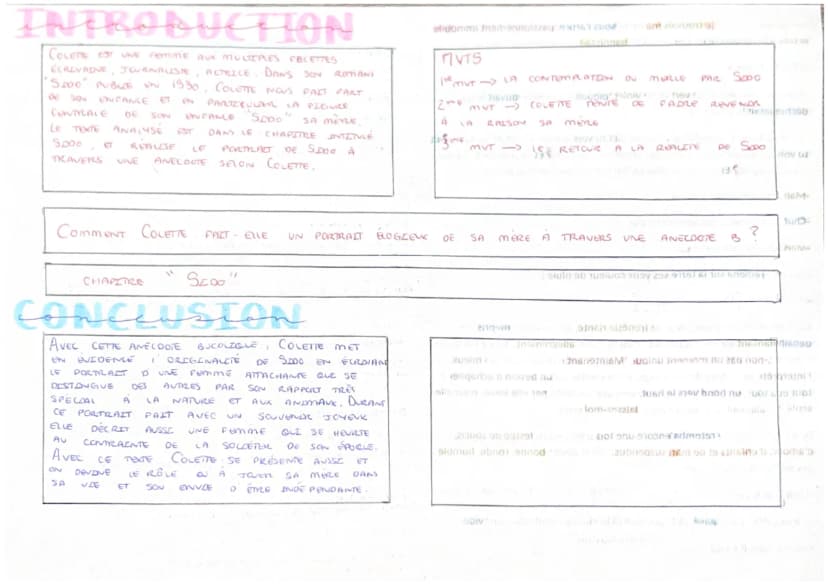 INTRODUCTION
introduction
COLETTE EST UNE FEMME AUX MULTIPLES FACETTES
ÉCRIVAINE, JOURNALISTE, ACTRICE. DANS SON ROMAN
"SIDO" PUBLIÉ EN 1930, COLETTE NOUS FAIT PART
DE SON ENFANCE ET EN PARTICULIER LA FIGURE
CENTRALE DE SON ENFANCE "SIDO" SA MÈRE.
LE TEXTE ANALYSÉ EST DANS LE CHAPITRE INTITULÉ
SIDO, ET RÉALISE LE PORTRAIT DE SIDO À
TRAVERS UNE ANECDOTE SELON COLETTE.
MVTS
1er MVT → LA CONTEMPLATION DU MERLE PAR SIDO
2ème MVT → COLETTE TENTE DE FAIRE REVENIR
À LA RAISON SA MÈRE
3ème MVT → LE RETOUR A LA RÉALITÉ DE SIDO
COMMENT COLETTE FAIT-ELLE UN PORTRAIT ÉLOGIEUX DE SA MÈRE À TRAVERS UNE ANECDOTE ?
CHAPITRE "SIDO"
CONCLUSION
conclusion
AVEC CETTE ANECDOTE BUCOLIQUE, COLETTE MET
EN EVIDENSE L'ORIGINALITÉ DE SIDO EN
LE PORTRAIT D'UNE FEMME ATTACHANTE QUI SE
DISTINGUE DES AUTRES PAR SON RAPPORT TRÈS
SPECIAL À LA NATURE ET AUX ANIMAUX. DURANT
CE PORTRAIT FAIT AVEC UN SOUVENIR JOYEUX
ELLE DÉCRIT AUSSI UNE FEMME QUI SE HEURTE
AU CONTRAINTE DE LA SOCIÉTÉR DE SON ÉPOQUE.
AVEC CE TEXTE COLETTE SE PRÉSENTE AUSSI ET
ON DEVINE LE RÔLE QU'À JOUER SA MÈRE DANS
SA VIE ET SON ENVIE D'ÊTRE INDÉPENDANTE.